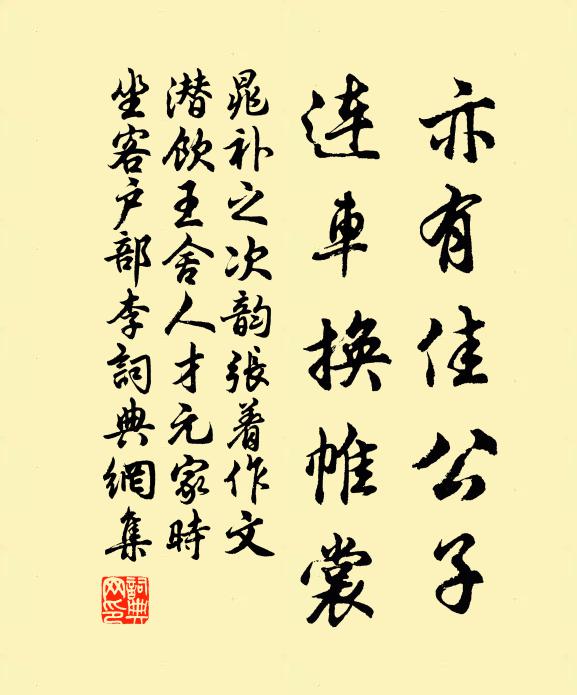 亦有佳公子
連車換帷裳
晁补之次韵張著作文
潜飲王舍人才元家時
坐客户部李詞典網集
詞典网印